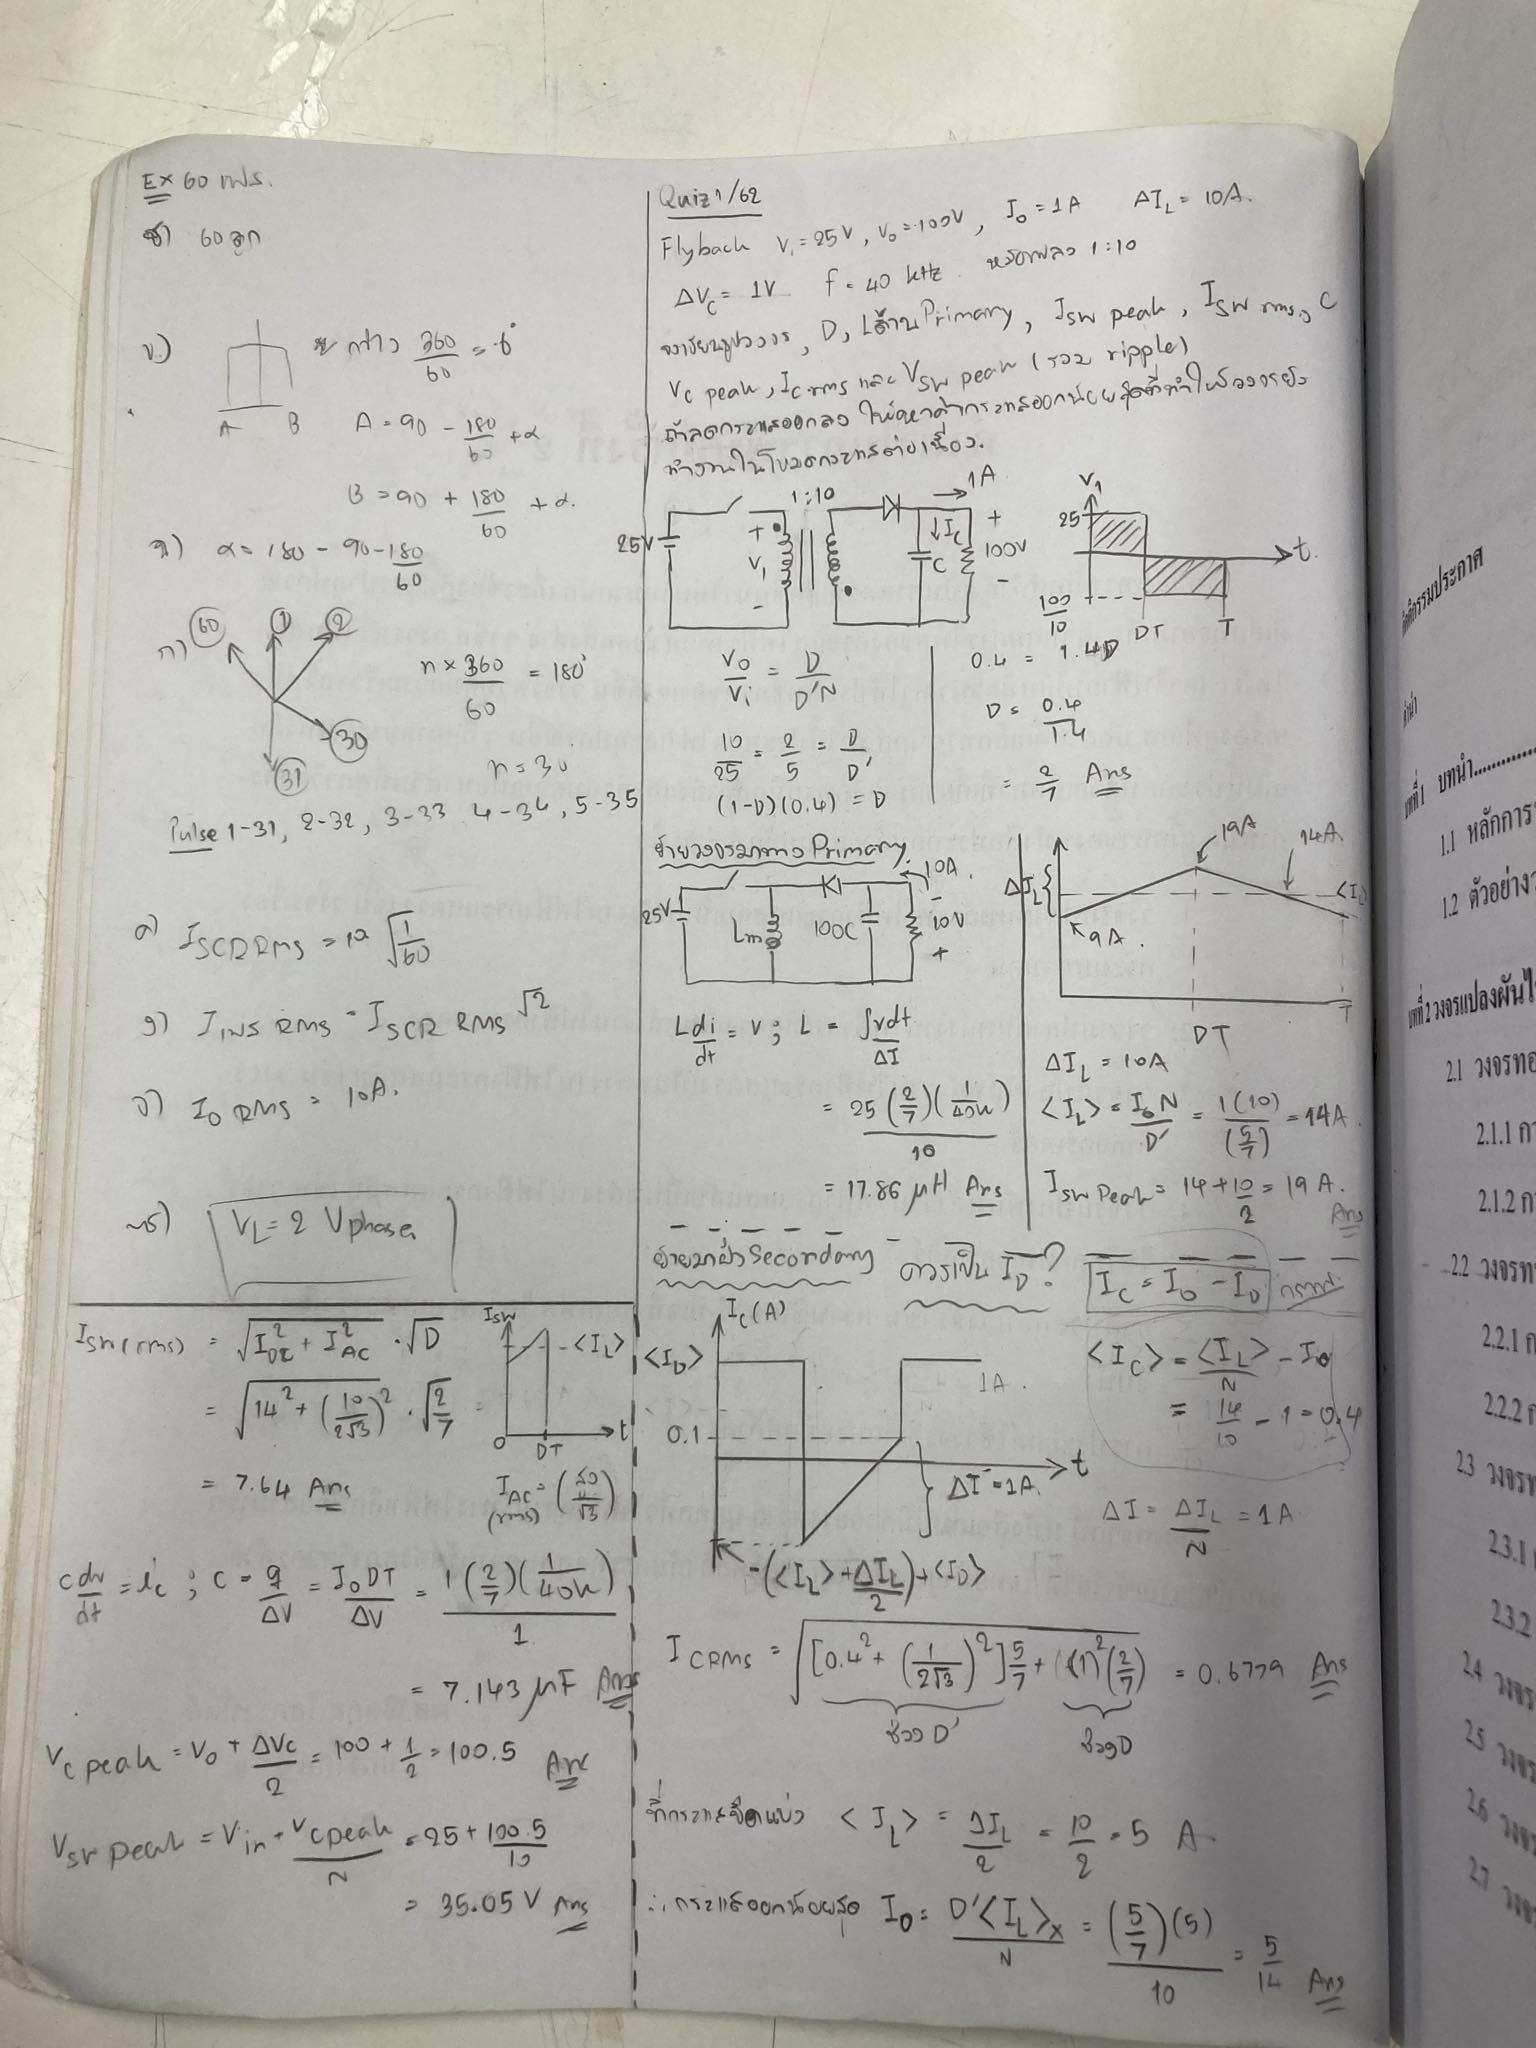 EX 60 เฟส.
60 ลูก
ข.)
กว้าง 360/60 = 6°
A B
A = 90 - 180/60 + α
B = 90 + 180/60 + α.
α = 180 - 90 - 180/60
60 1 2
30
31
n × 360/60 = 180°
n = 30
Pulse 1-31, 2-32, 3-33 4-34, 5-35
I SCR RMS = 10 √(1/60)
I INS RMS = I SCR RMS √2
I O RMS = 10A.
VL = 2 Vphase
Isw(rms) = √(I²DC + I²AC) · √D
= √(14² + (10/2√3)²) · √(2/7)
= 7.64 Ans
Isw
<IL>
O DT t
IAC (rms) =
C dv/dt = ic ; C = q/ΔV = IoDT/ΔV = 1(2/7)(1/40k)/1
= 7.143 μF Ans
Vc peak = Vo + ΔVc/2 = 100 + 1/2 = 100.5 Ans
Vsw peak = Vin + Vcpeak/N = 25 + 100.5/10
= 35.05 V Ans
Quiz 1/62
Flyback Vi = 25V, Vo = 100V, Io = 1A ΔIL = 10A.
ΔVc = 1V f = 40 kHz. หม้อแปลง 1:10
จงเขียนรูปวงจร, D, Lด้านPrimary, Isw peak, Isw rms, C
Vc peak, Ic rms และ Vsw peak (รวม ripple)
ถ้าลดกระแสออกลง ให้หาค่ากระแสออกน้อยสุดที่ทำให้วงจรยัง
ทำงานในโหมดกระแสต่อเนื่อง.
1:10 1A
25V + V1 - Ic C + 100V -
V1
25
100/10
DT T t.
Vo/Vi = D/D'N
10/25 = 2/5 = D/D'
(1-D)(0.4) = D
0.4 = 1.4D
D = 0.4/1.4
= 2/7 Ans
ย้ายวงจรมาทาง Primary.
10A.
25V Lm 100C - 10V +
19A 14A.
ΔIL <IL>
9A.
DT T
L di/dt = V ; L = ∫vdt/ΔI
= 25(2/7)(1/40k)/10
= 17.86 μH Ans
ΔIL = 10A
<IL> = IoN/D' = 1(10)/(5/7) = 14A.
Isw Peak = 14 + 10/2 = 19 A.
Ans
ย้ายมาฝั่ง Secondary ควรเป็น ID?
IC = IO - ID
IC (A)
<ID>
1A.
0.1
t
ΔI = 1A.
-(<IL> + ΔIL/2) + <ID>
<IC> = <IL>/N - Io
= 14/10 - 1 = 0.4
ΔI = ΔIL/N = 1A
I CRMS = √([0.4² + (1/2√3)²]5/7 + (1)²(2/7)) = 0.6779 Ans
ช่วง D' ช่วง D
<IL> = ΔIL/2 = 10/2 = 5 A.
∴ กระแสออกน้อยสุด Io = D'<IL>x/N = (5/7)(5)/10 = 5/14 Ans
กิตติกรรมประกาศ
บทที่ 1 บทนำ
1.1 หลักการ
1.2 ตัวอย่าง
บทที่ 2 วงจรแปลงผัน
2.1 วงจรทอ
2.1.1
2.1.2
2.2 วงจรท
2.2.1
2.2.2
2.3 วงจร
2.3.1
2.3.2
2.4 วงจร
2.5 วงจร
2.6 วงจ
2.7 วงจ